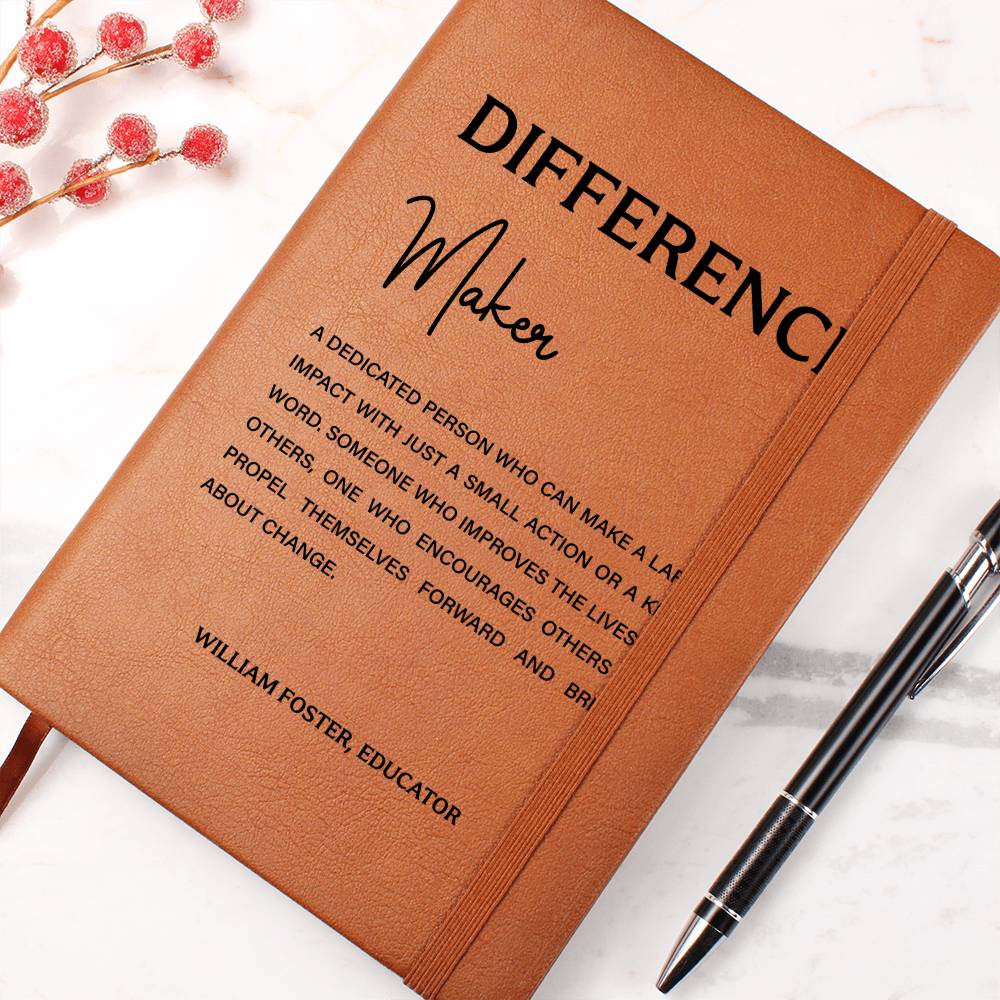 DIFFERENC
Maker
A DEDICATED PERSON WHO CAN MAKE A LAR
IMPACT WITH JUST A SMALL ACTION OR A KI
WORD. SOMEONE WHO IMPROVES THE LIVES
OTHERS, ONE WHO ENCOURAGES OTHERS
PROPEL THEMSELVES FORWARD AND BRI
ABOUT CHANGE.
WILLIAM FOSTER, EDUCATOR